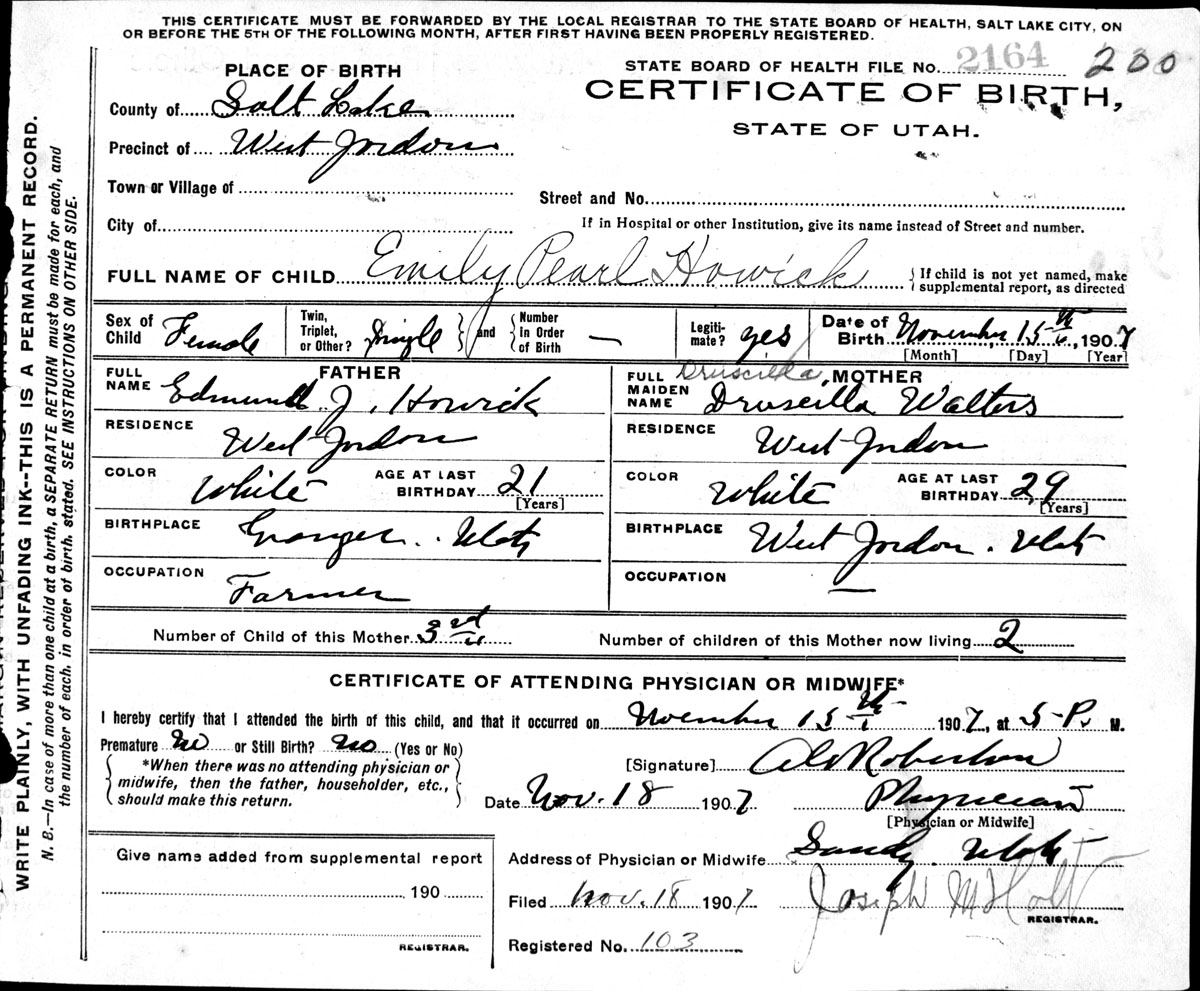 THIS CERTIFICATE MUST BE FORWARDED BY THE LOCAL REGISTRAR TO THE STATE BOARD OF HEALTH, SALT LAKE CITY, ON
OR BEFORE THE 5TH OF THE FOLLOWING MONTH, AFTER FIRST HAVING BEEN PROPERLY REGISTERED.
STATE BOARD OF HEALTH FILE NO. 2164 200
CERTIFICATE OF BIRTH,
STATE OF UTAH.
PLACE OF BIRTH
County of Salt Lake
Precinct of West Jordon
Town or Village of
Street and No.
City of
If in Hospital or other Institution, give its name instead of Street and number.
FULL NAME OF CHILD Emily Pearl Howick { If child is not yet named, make
supplemental report, as directed
Sex of Child Female
Twin, Triplet, or Other? Single } and { Number in Order of Birth —
Legiti-mate? yes
Date of Birth November 15th, 1907
[Month] [Day] [Year]
FATHER
FULL NAME Edmund J. Howick
RESIDENCE West Jordon
COLOR White AGE AT LAST BIRTHDAY 21
[Years]
BIRTHPLACE Granger. Utah
OCCUPATION Farmer
Druscilda, MOTHER
FULL MAIDEN NAME Druscilla Walters
RESIDENCE West Jordon
COLOR White AGE AT LAST BIRTHDAY 29
[Years]
BIRTHPLACE West Jordon. Utah
OCCUPATION —
Number of Child of this Mother 3rd
Number of children of this Mother now living 2
CERTIFICATE OF ATTENDING PHYSICIAN OR MIDWIFE*
I hereby certify that I attended the birth of this child, and that it occurred on Noember 15th 1907, at 5-P. M.
Premature No or Still Birth? No (Yes or No)
{ *When there was no attending physician or
midwife, then the father, householder, etc.,
should make this return. }
[Signature] Robertson
Date Nov. 18 1907 Physician
[Physician or Midwife]
Address of Physician or Midwife Sandy. Utah
Filed Nov. 18 1907 Joseph M Holt
REGISTRAR.
Registered No. 103
Give name added from supplemental report
, 190
REGISTRAR.
WRITE PLAINLY, WITH UNFADING INK--THIS IS A PERMANENT RECORD.
N. B.—In case of more than one child at a birth, a SEPARATE RETURN must be made for each, and
the number of each, in order of birth, stated. SEE INSTRUCTIONS ON OTHER SIDE.